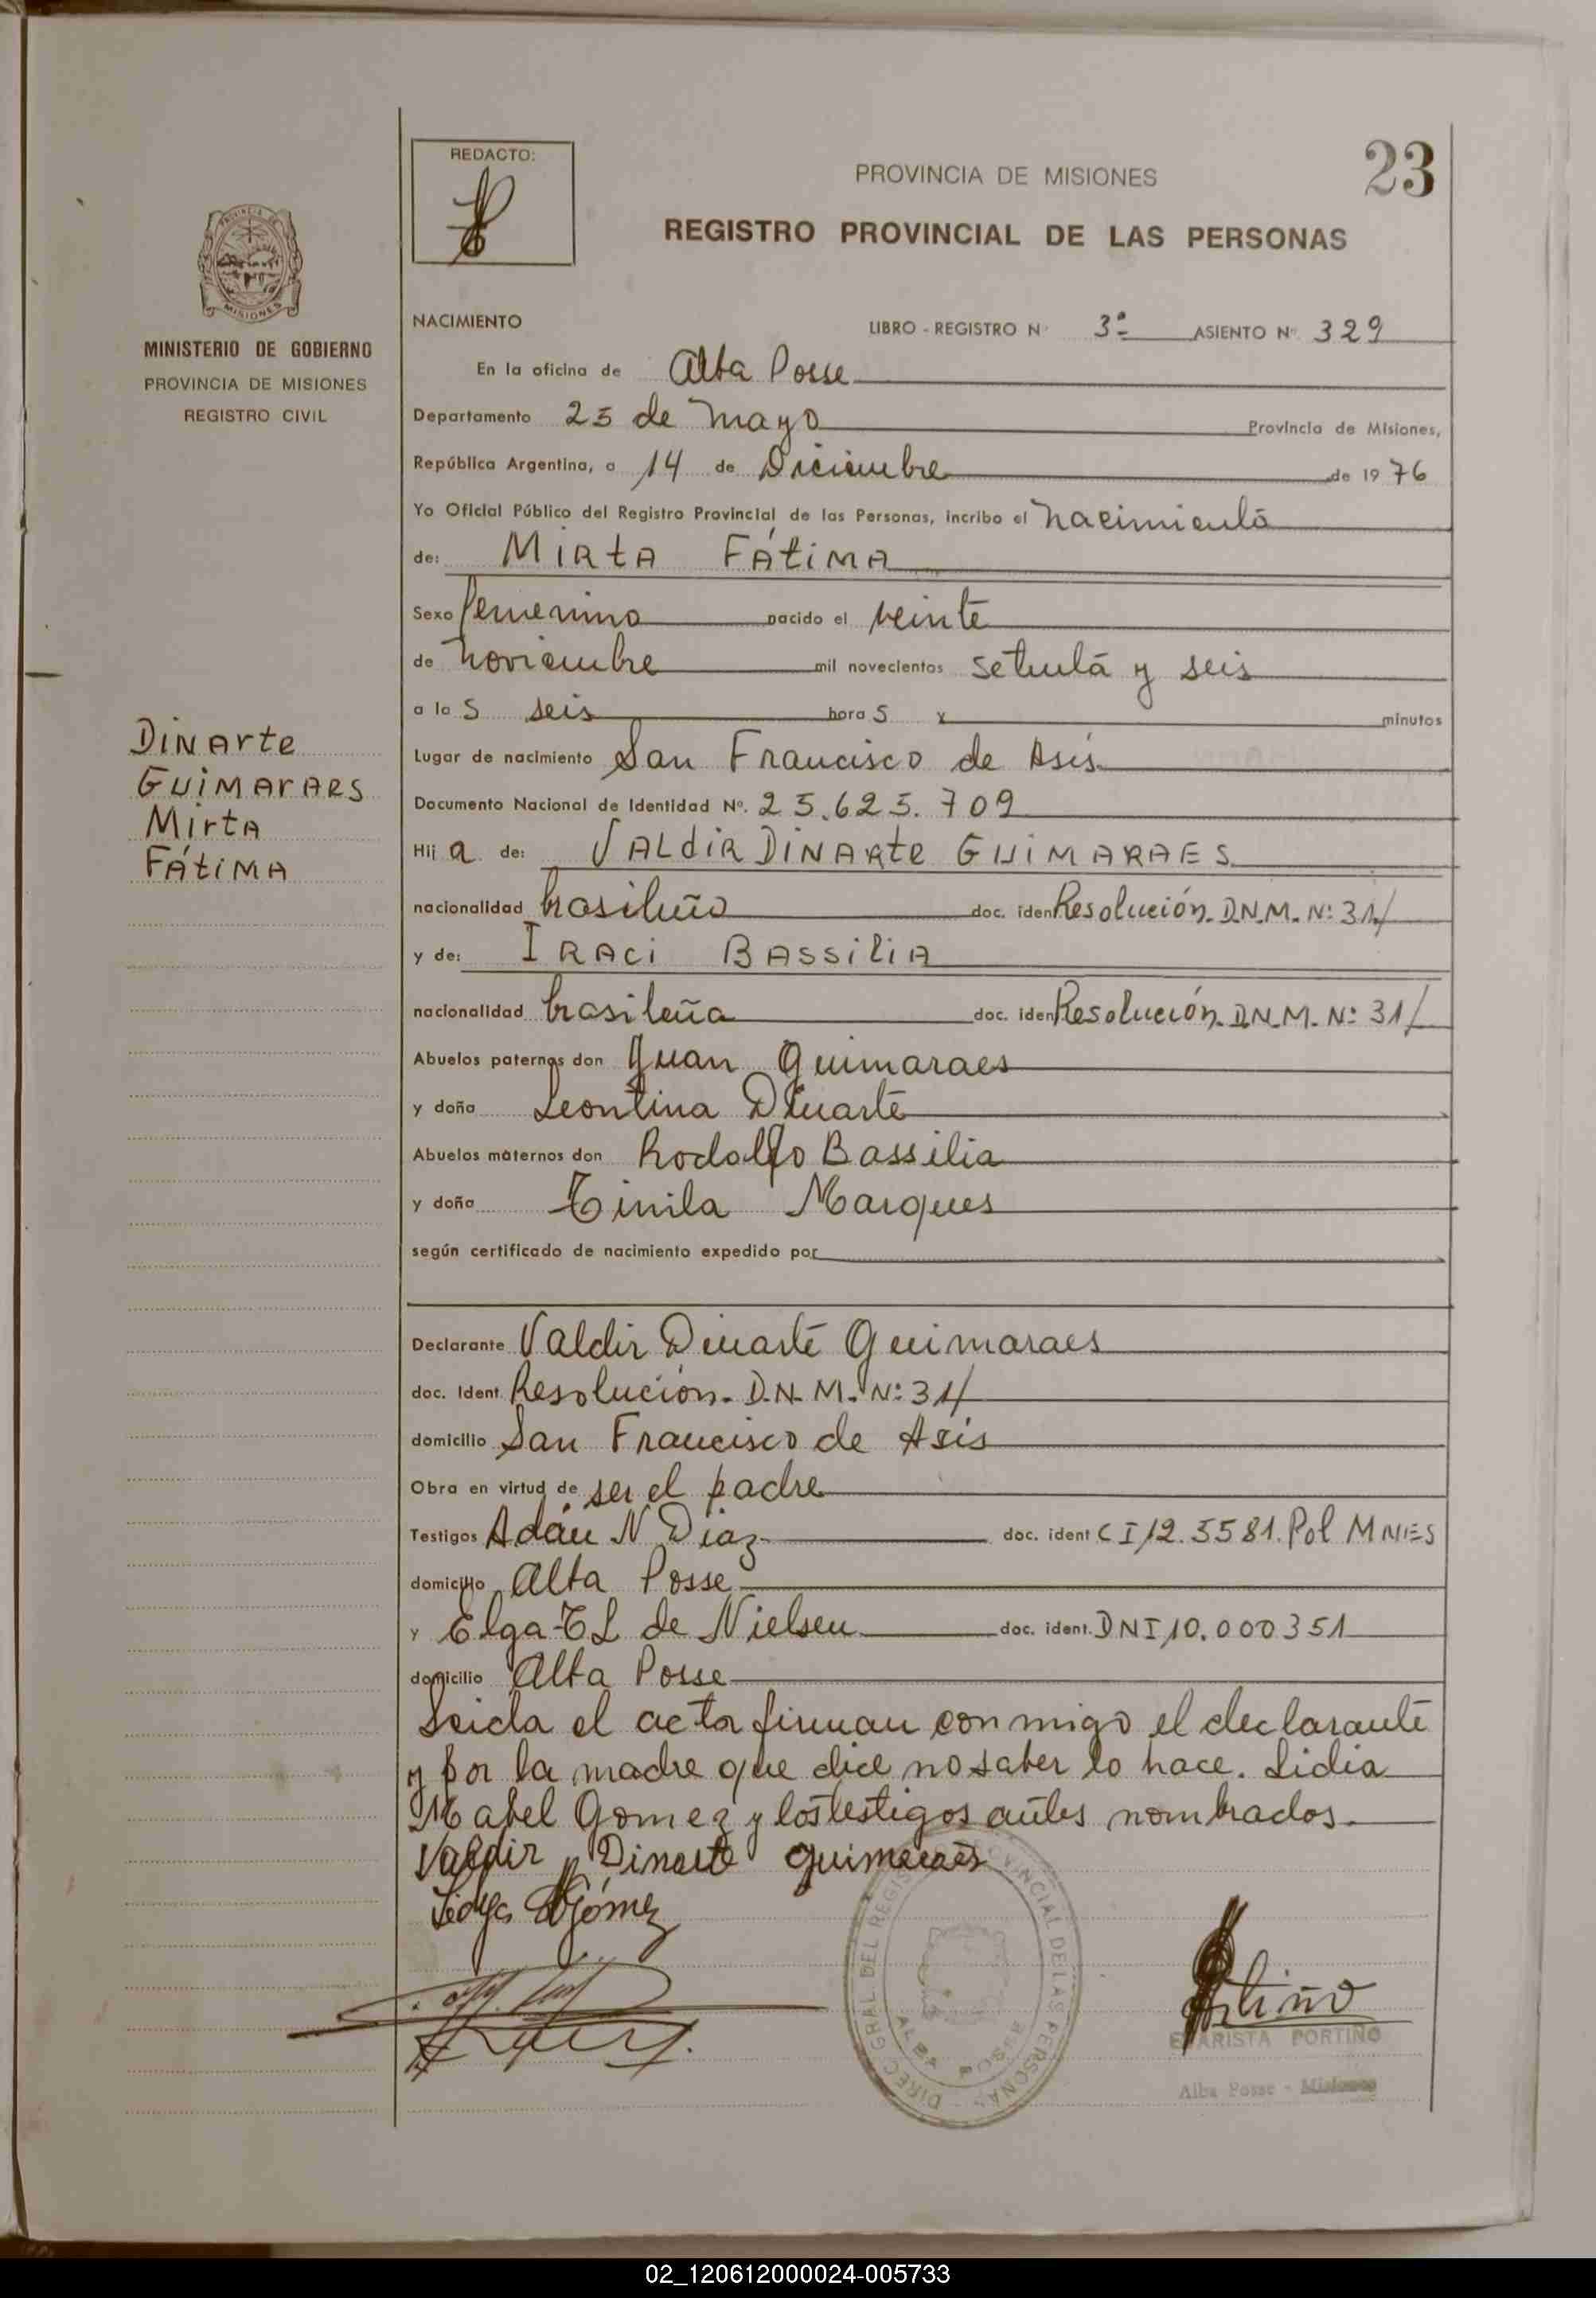 REDACTO:
PROVINCIA DE MISIONES
23
REGISTRO PROVINCIAL DE LAS PERSONAS
MINISTERIO DE GOBIERNO
PROVINCIA DE MISIONES
REGISTRO CIVIL
NACIMIENTO
LIBRO - REGISTRO Nº 3º ASIENTO Nº 329
En la oficina de Alba Posse
Departamento 25 de Mayo Provincia de Misiones,
República Argentina, a 14 de Diciembre de 1976
Yo Oficial Público del Registro Provincial de las Personas, incribo el nacimiento
de: MIRTA FÁTIMA
Sexo femenino nacido el veinte
de noviembre mil novecientos setenta y seis
a las seis horas y minutos
Dinarte
Guimaraes
Mirta
Fátima
Lugar de nacimiento San Francisco de Asís
Documento Nacional de Identidad Nº. 25.625.709
Hija de: VALdiR DiNARte GUiMARAES
nacionalidad brasileño doc. iden Resolución. D.N.M. Nº 31/
y de: IRACi BASSiliA
nacionalidad brasileña doc. iden Resolución. D.N.M. Nº 31/
Abuelos paternos don Juan Guimaraes
y doña Leontina Dinarte
Abuelos maternos don Rodolfo Bassilia
y doña Marques
según certificado de nacimiento expedido por
Declarante Valdir Dinarte Guimaraes
doc. Ident. Resolución. D.N.M. Nº 31/
domicilio San Francisco de Asís
Obra en virtud de ser el padre
Testigos Adán N. Díaz doc. ident C I 12.5581. Pol MNES
domicilio Alba Posse
y Elga de Nielsen doc. ident. DNI 10.000351
domicilio Alba Posse
Leida el acta firman conmigo el declarante
y por la madre que dice no saber lo hace. Lidia
Mabel Gomez y los testigos antes nombrados.
Valdir Dinarte guimaraes
Gómez
DIREC GRAL. DEL REGISTRO PROVINCIAL DE LAS PERSONAS
ALBA POSSE
EVARISTA PORTIÑO
Alba Posse - Misiones
02_120612000024-005733